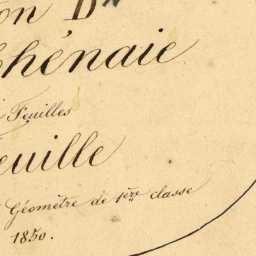 on Dn
Chénaie
Feuilles
euille
Géomètre de 1ère classe
1850.